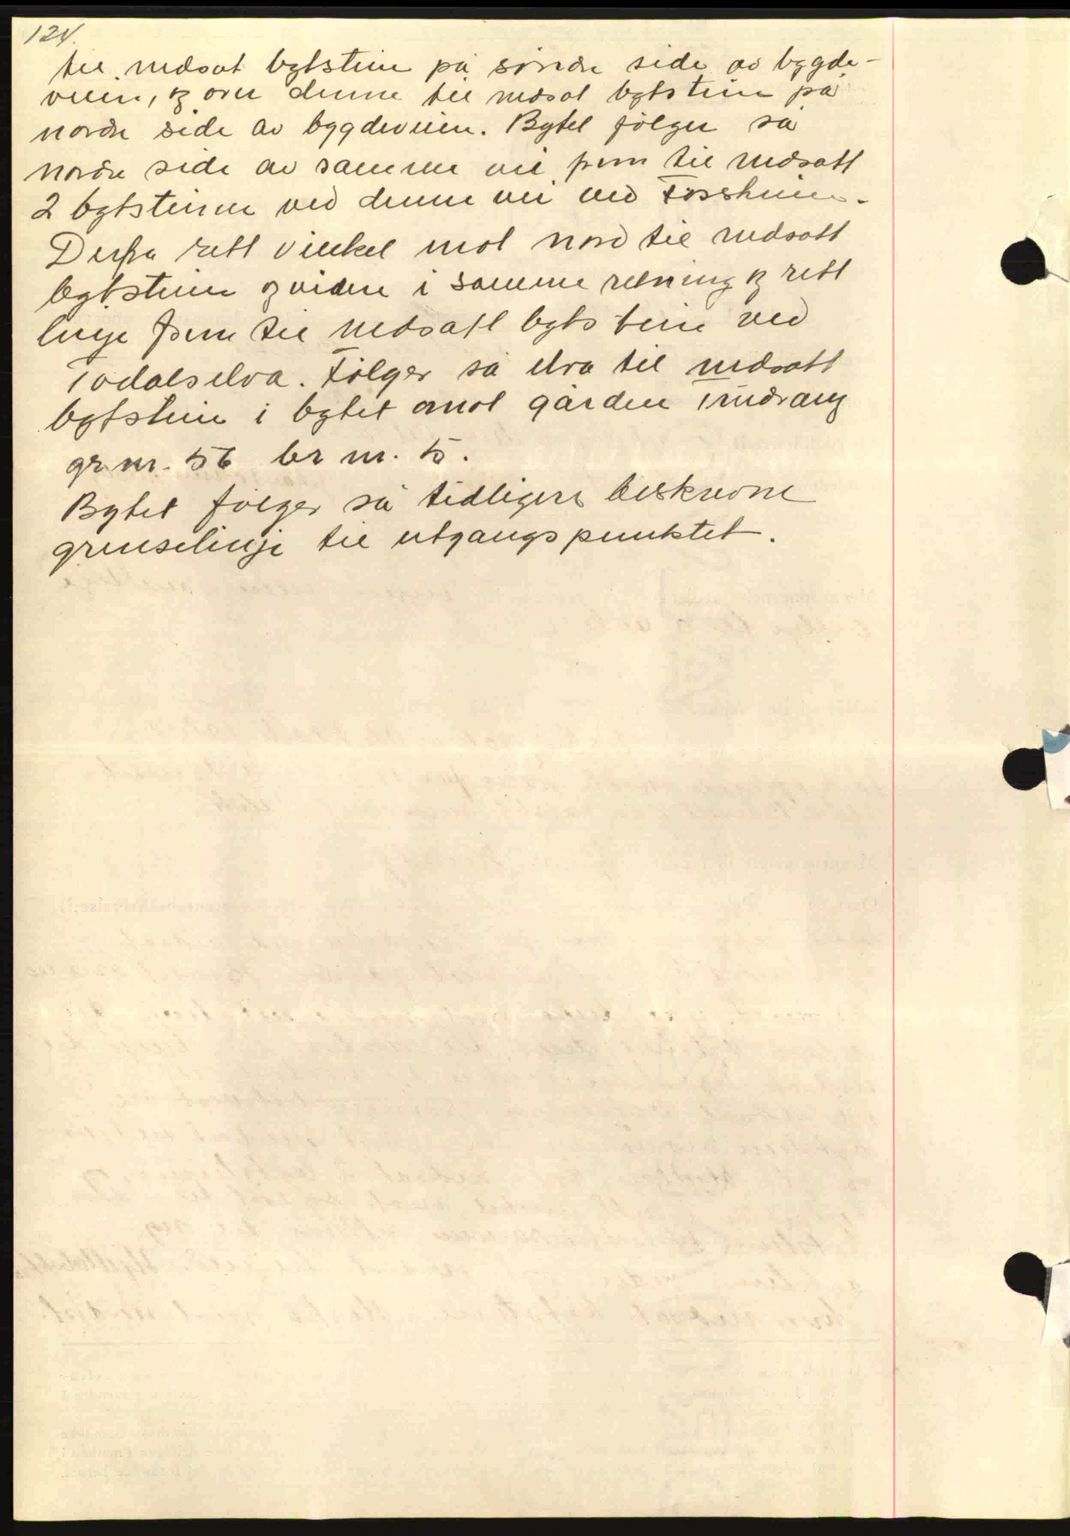 124.
til nedsat bytstein på søndre side av bygde-
veien, og over denne til nedsat bytstein på
nordre side av bygdeveien. Bytet følger så
nordre side av samme vei frem til nedsatt
2 bytsteiner ved denne vei ved Fossheim.
Derfra rett vinkel mot nord til nedsatt
bytstein og videre i samme retning og rett
linje frem til nedsatt bytstein ved
Todalselva. Følger så elva til nedsatt
bytstein i bytet mot gården
gr nr. 56 br nr. 5.
Bytet følger så tidligere beskrevne
grenselinje til utgangspunktet.